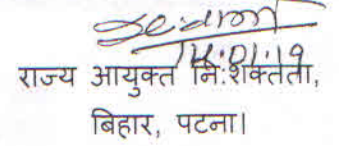 14.01.19
राज्य आयुक्त निःशक्तता,
बिहार, पटना।